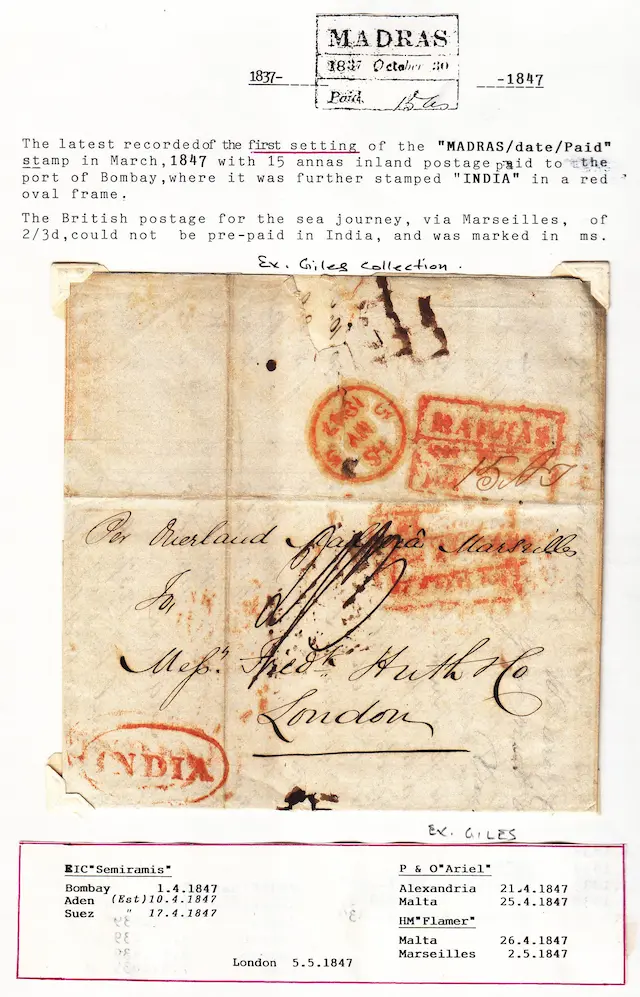 MADRAS
1837 October 30
Paid. 15 As
1837-
-1847
The latest recorded of the first setting of the "MADRAS/date/Paid"
stamp in March,1847 with 15 annas inland postage paid to the
port of Bombay,where it was further stamped "INDIA" in a red
oval frame.
The British postage for the sea journey, via Marseilles, of
2/3d,could not be pre-paid in India, and was marked in ms.
Ex. Giles Collection.
MADRAS
15 As
Per Overland Mail via Marseilles
To,
Messrs. Fredk. Huth & Co
London
INDIA
Ex. GILES
EIC"Semiramis"
Bombay 1.4.1847
Aden (Est)10.4.1847
Suez " 17.4.1847
P & O"Ariel"
Alexandria 21.4.1847
Malta 25.4.1847
HM"Flamer"
Malta 26.4.1847
Marseilles 2.5.1847
London 5.5.1847